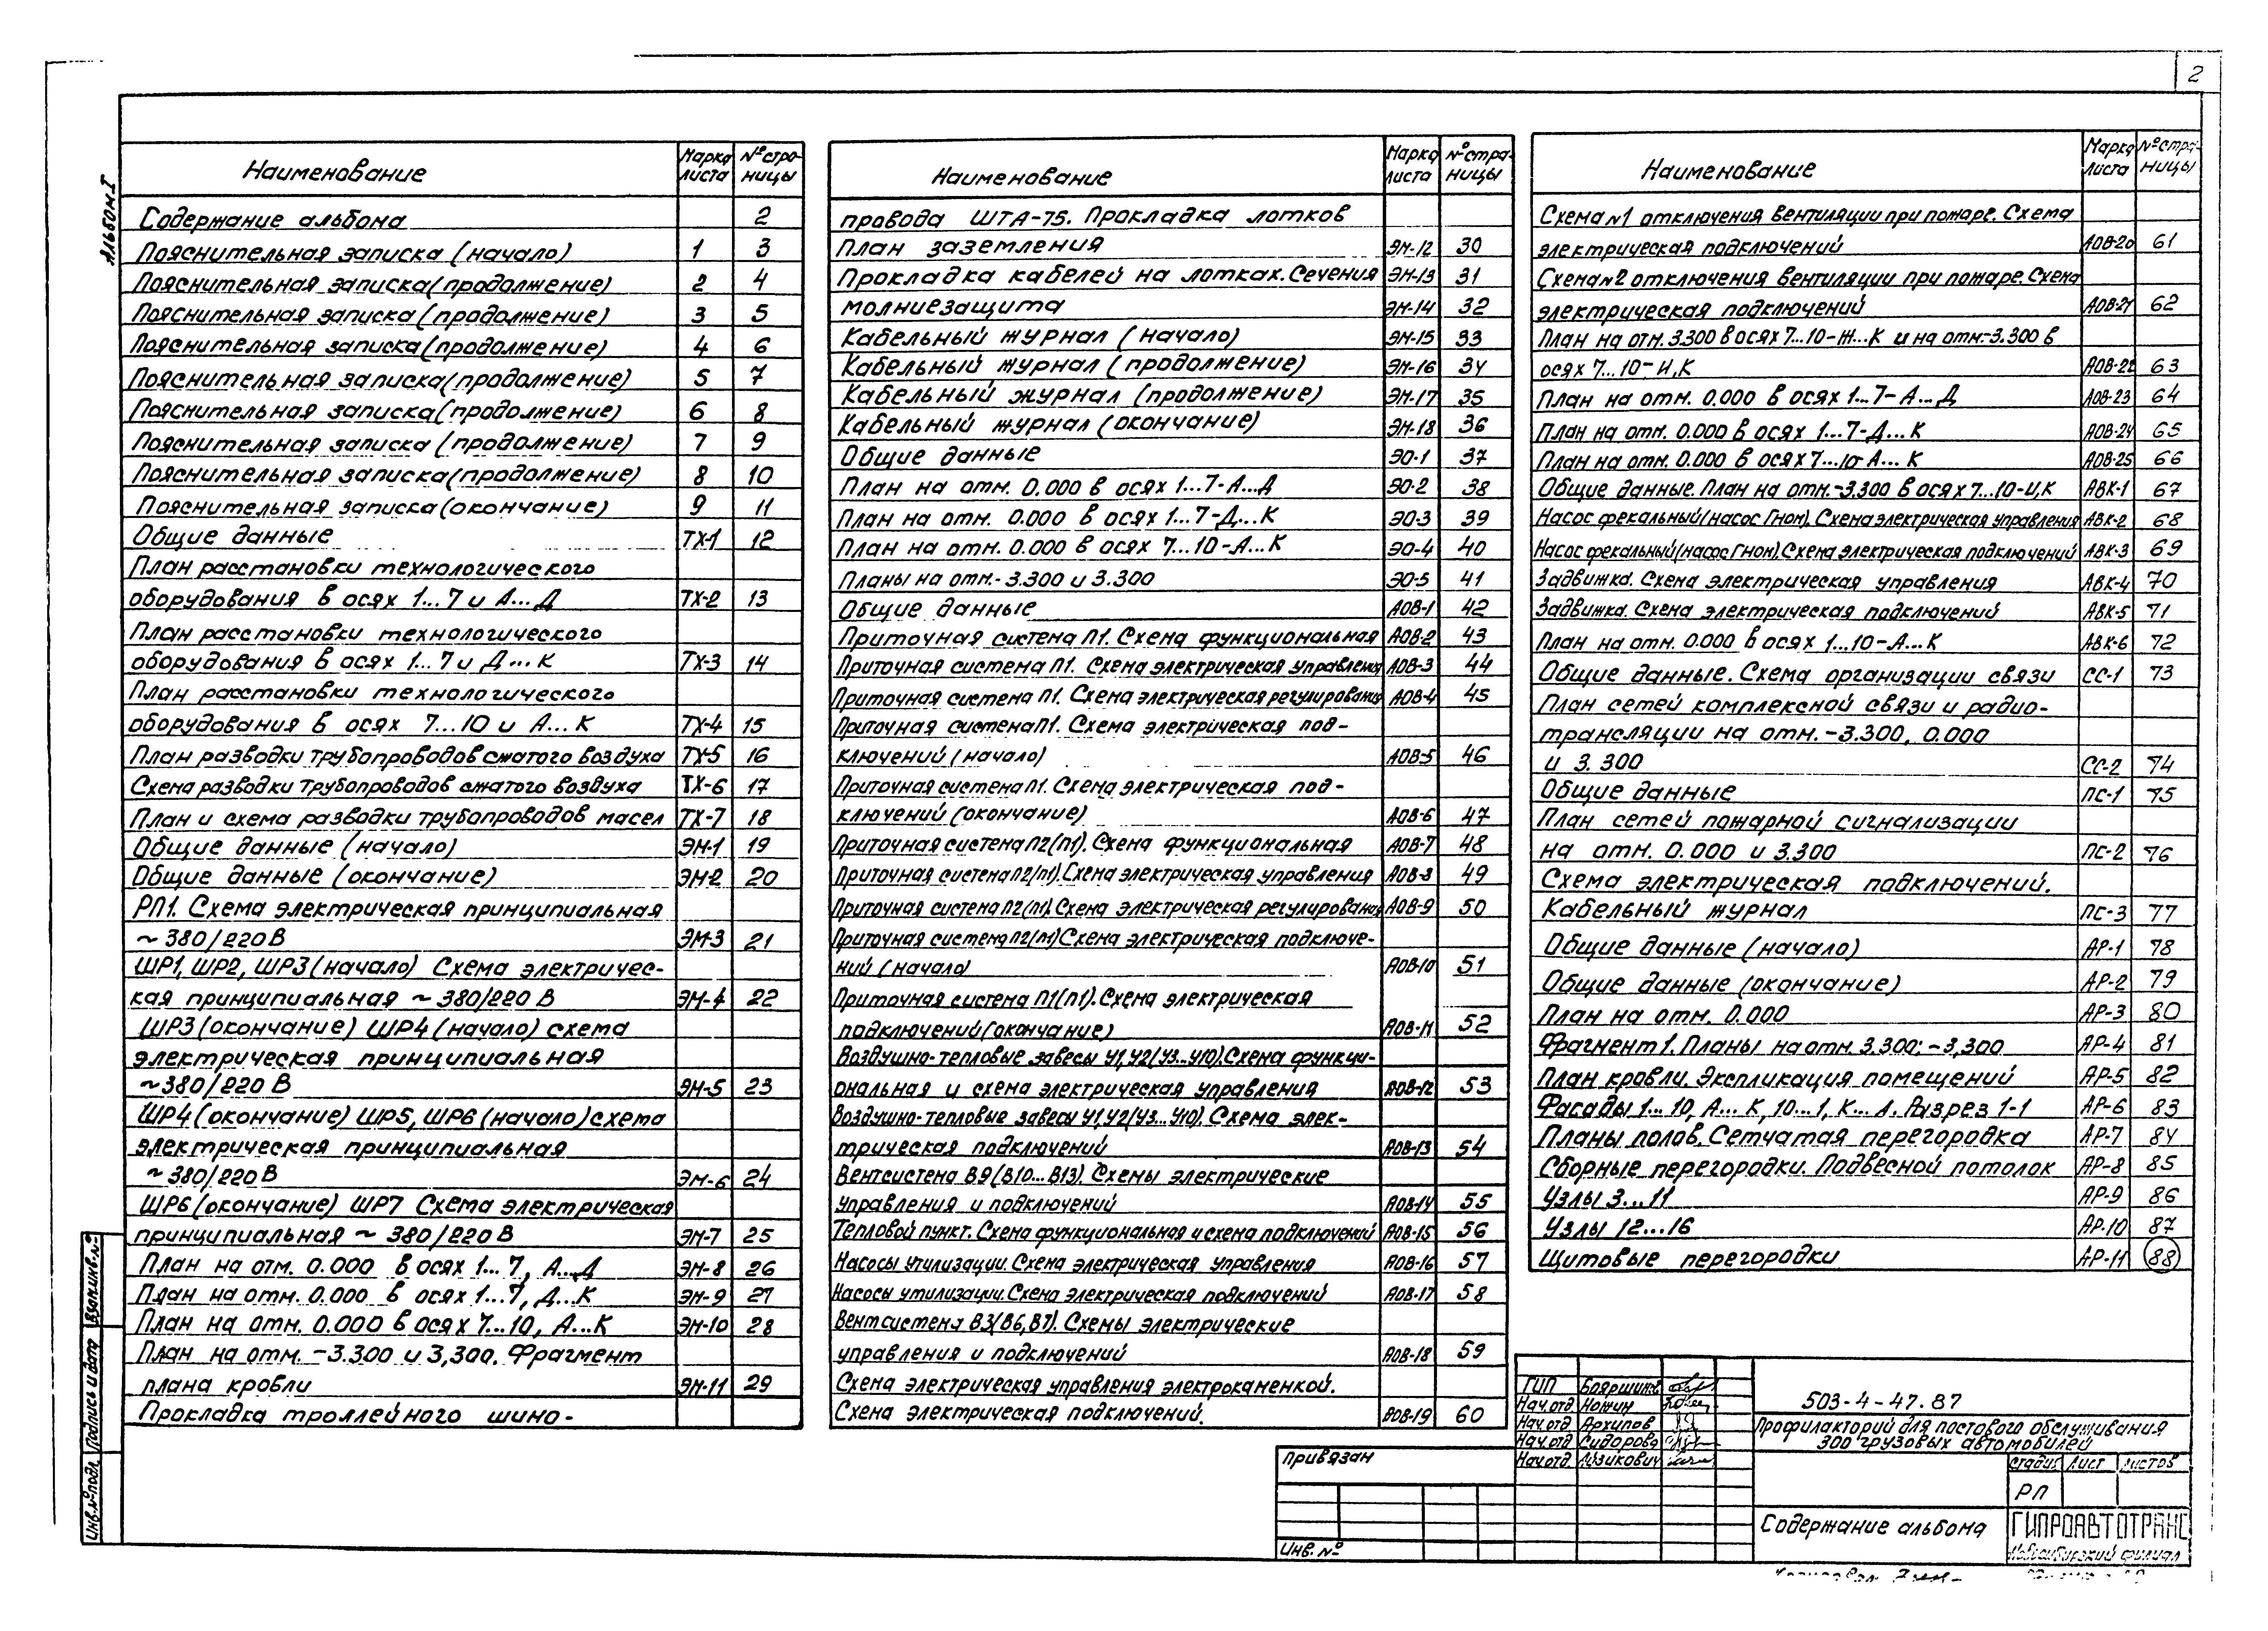 2
Альбом I
Наименование Марка листа № стра-ницы
Содержание альбома 2
Пояснительная записка (начало) 1 3
Пояснительная записка (продолжение) 2 4
Пояснительная записка (продолжение) 3 5
Пояснительная записка (продолжение) 4 6
Пояснительная записка (продолжение) 5 7
Пояснительная записка (продолжение) 6 8
Пояснительная записка (продолжение) 7 9
Пояснительная записка (продолжение) 8 10
Пояснительная записка (окончание) 9 11
Общие данные ТХ-1 12
План расстановки технологического
оборудования в осях 1...7 и А...Д ТХ-2 13
План расстановки технологического
оборудования в осях 1...7 и Д...К ТХ-3 14
План расстановки технологического
оборудования в осях 7...10 и А...К ТХ-4 15
План разводки трубопроводов сжатого воздуха ТХ-5 16
Схема разводки трубопроводов сжатого воздуха ТХ-6 17
План и схема разводки трубопроводов масел ТХ-7 18
Общие данные (начало) ЭМ-1 19
Общие данные (окончание) ЭМ-2 20
РП1. Схема электрическая принципиальная
~380/220 В ЭМ-3 21
ШР1, ШР2, ШР3 (начало) Схема электричес-
кая принципиальная ~380/220 В ЭМ-4 22
ШР3 (окончание) ШР4 (начало) схема
электрическая принципиальная
~380/220 В ЭМ-5 23
ШР4 (окончание) ШР5, ШР6 (начало) схема
электрическая принципиальная
~380/220 В ЭМ-6 24
ШР6 (окончание) ШР7 Схема электрическая
принципиальная ~380/220 В ЭМ-7 25
План на отм. 0.000 в осях 1...7, А...Д ЭМ-8 26
План на отм. 0.000 в осях 1...7, Д...К ЭМ-9 27
План на отм. 0.000 в осях 7...10, А...К ЭМ-10 28
План на отм. -3.300 и 3,300. Фрагмент
плана кровли ЭМ-11 29
Прокладка троллейного шино-
Наименование Марка листа № стра-ницы
провода ШТА-75. Прокладка лотков
План заземления ЭМ-12 30
Прокладка кабелей на лотках. Сечения ЭМ-13 31
Молниезащита ЭМ-14 32
Кабельный журнал (начало) ЭМ-15 33
Кабельный журнал (продолжение) ЭМ-16 34
Кабельный журнал (продолжение) ЭМ-17 35
Кабельный журнал (окончание) ЭМ-18 36
Общие данные ЭО-1 37
План на отм. 0.000 в осях 1...7-А...Д ЭО-2 38
План на отм. 0.000 в осях 1...7-Д...К ЭО-3 39
План на отм. 0.000 в осях 7...10-А...К ЭО-4 40
Планы на отм. -3.300 и 3.300 ЭО-5 41
Общие данные АОВ-1 42
Приточная система П1. Схема функциональная АОВ-2 43
Приточная система П1. Схема электрическая управления АОВ-3 44
Приточная система П1. Схема электрическая регулирования АОВ-4 45
Приточная система П1. Схема электрическая под-
ключений (начало) АОВ-5 46
Приточная система П1. Схема электрическая под-
ключений (окончание) АОВ-6 47
Приточная система П2(П1). Схема функциональная АОВ-7 48
Приточная система П2(П1). Схема электрическая управления АОВ-8 49
Приточная система П2(П1). Схема электрическая регулирования АОВ-9 50
Приточная система П2(П1) Схема электрическая подключе-
ний (начало) АОВ-10 51
Приточная система П1(П1). Схема электрическая
подключений (окончание) АОВ-11 52
Воздушно-тепловые завесы У1,У2(У3...У10). Схема функци-
ональная и схема электрическая управления АОВ-12 53
Воздушно-тепловые завесы У1,У2(У3...У10). Схема элек-
трическая подключений АОВ-13 54
Вентсистема В9(В10...В13). Схемы электрические
управления и подключений АОВ-14 55
Тепловой пункт. Схема функциональная и схема подключений АОВ-15 56
Насосы утилизации. Схема электрическая управления АОВ-16 57
Насосы утилизации. Схема электрическая подключений АОВ-17 58
Вентсистема В3(В6,В7). Схемы электрические
управления и подключений АОВ-18 59
Схема электрическая управления электрокаменкой.
Схема электрическая подключений. АОВ-19 60
Наименование Марка листа № стра-ницы
Схема №1 отключения вентиляции при пожаре. Схема
электрическая подключений АОВ-20 61
Схема №2 отключения вентиляции при пожаре. Схема
электрическая подключений АОВ-21 62
План на отм. 3.300 в осях 7...10-Ж...К и на отм. -3.300 в
осях 7...10-И,К АОВ-22 63
План на отм. 0.000 в осях 1...7-А...Д АОВ-23 64
План на отм. 0.000 в осях 1...7-Д...К АОВ-24 65
План на отм. 0.000 в осях 7...10-А...К АОВ-25 66
Общие данные. План на отм. -3.300 в осях 7...10-И,К АВК-1 67
Насос фекальный (насос Гном). Схема электрическая управления АВК-2 68
Насос фекальный (насос Гном). Схема электрическая подключений АВК-3 69
Задвижка. Схема электрическая управления АВК-4 70
Задвижка. Схема электрическая подключений АВК-5 71
План на отм. 0.000 в осях 1...10-А...К АВК-6 72
Общие данные. Схема организации связи СС-1 73
План сетей комплексной связи и радио-
трансляции на отм. -3.300, 0.000
и 3.300 СС-2 74
Общие данные ПС-1 75
План сетей пожарной сигнализации
на отм. 0.000 и 3.300 ПС-2 76
Схема электрическая подключений.
Кабельный журнал ПС-3 77
Общие данные (начало) АР-1 78
Общие данные (окончание) АР-2 79
План на отм. 0.000 АР-3 80
Фрагмент 1. Планы на отм. 3.300; -3,300 АР-4 81
План кровли. Экспликация помещений АР-5 82
Фасады 1...10, А...К, 10...1, К...А. Разрез 1-1 АР-6 83
Планы полов. Сетчатая перегородка АР-7 84
Сборные перегородки. Подвесной потолок АР-8 85
Узлы 3...11 АР-9 86
Узлы 12...16 АР-10 87
Щитовые перегородки АР-11 88
Привязан
Инв. №
ГИП Бояршинов
Нач.отд. Номин
Нач.отд. Архипов
Нач.отд. Сидорова
Нач.отд. Изикович
503-4-47.87
Профилакторий для постового обслуживания
300 грузовых автомобилей
Стадия Лист Листов
РП
Содержание альбома
ГИПРОАВТОТРАНС
Новосибирский филиал
Копировал
Взам.инв.№
Подпись и дата
Инв.№ подл.